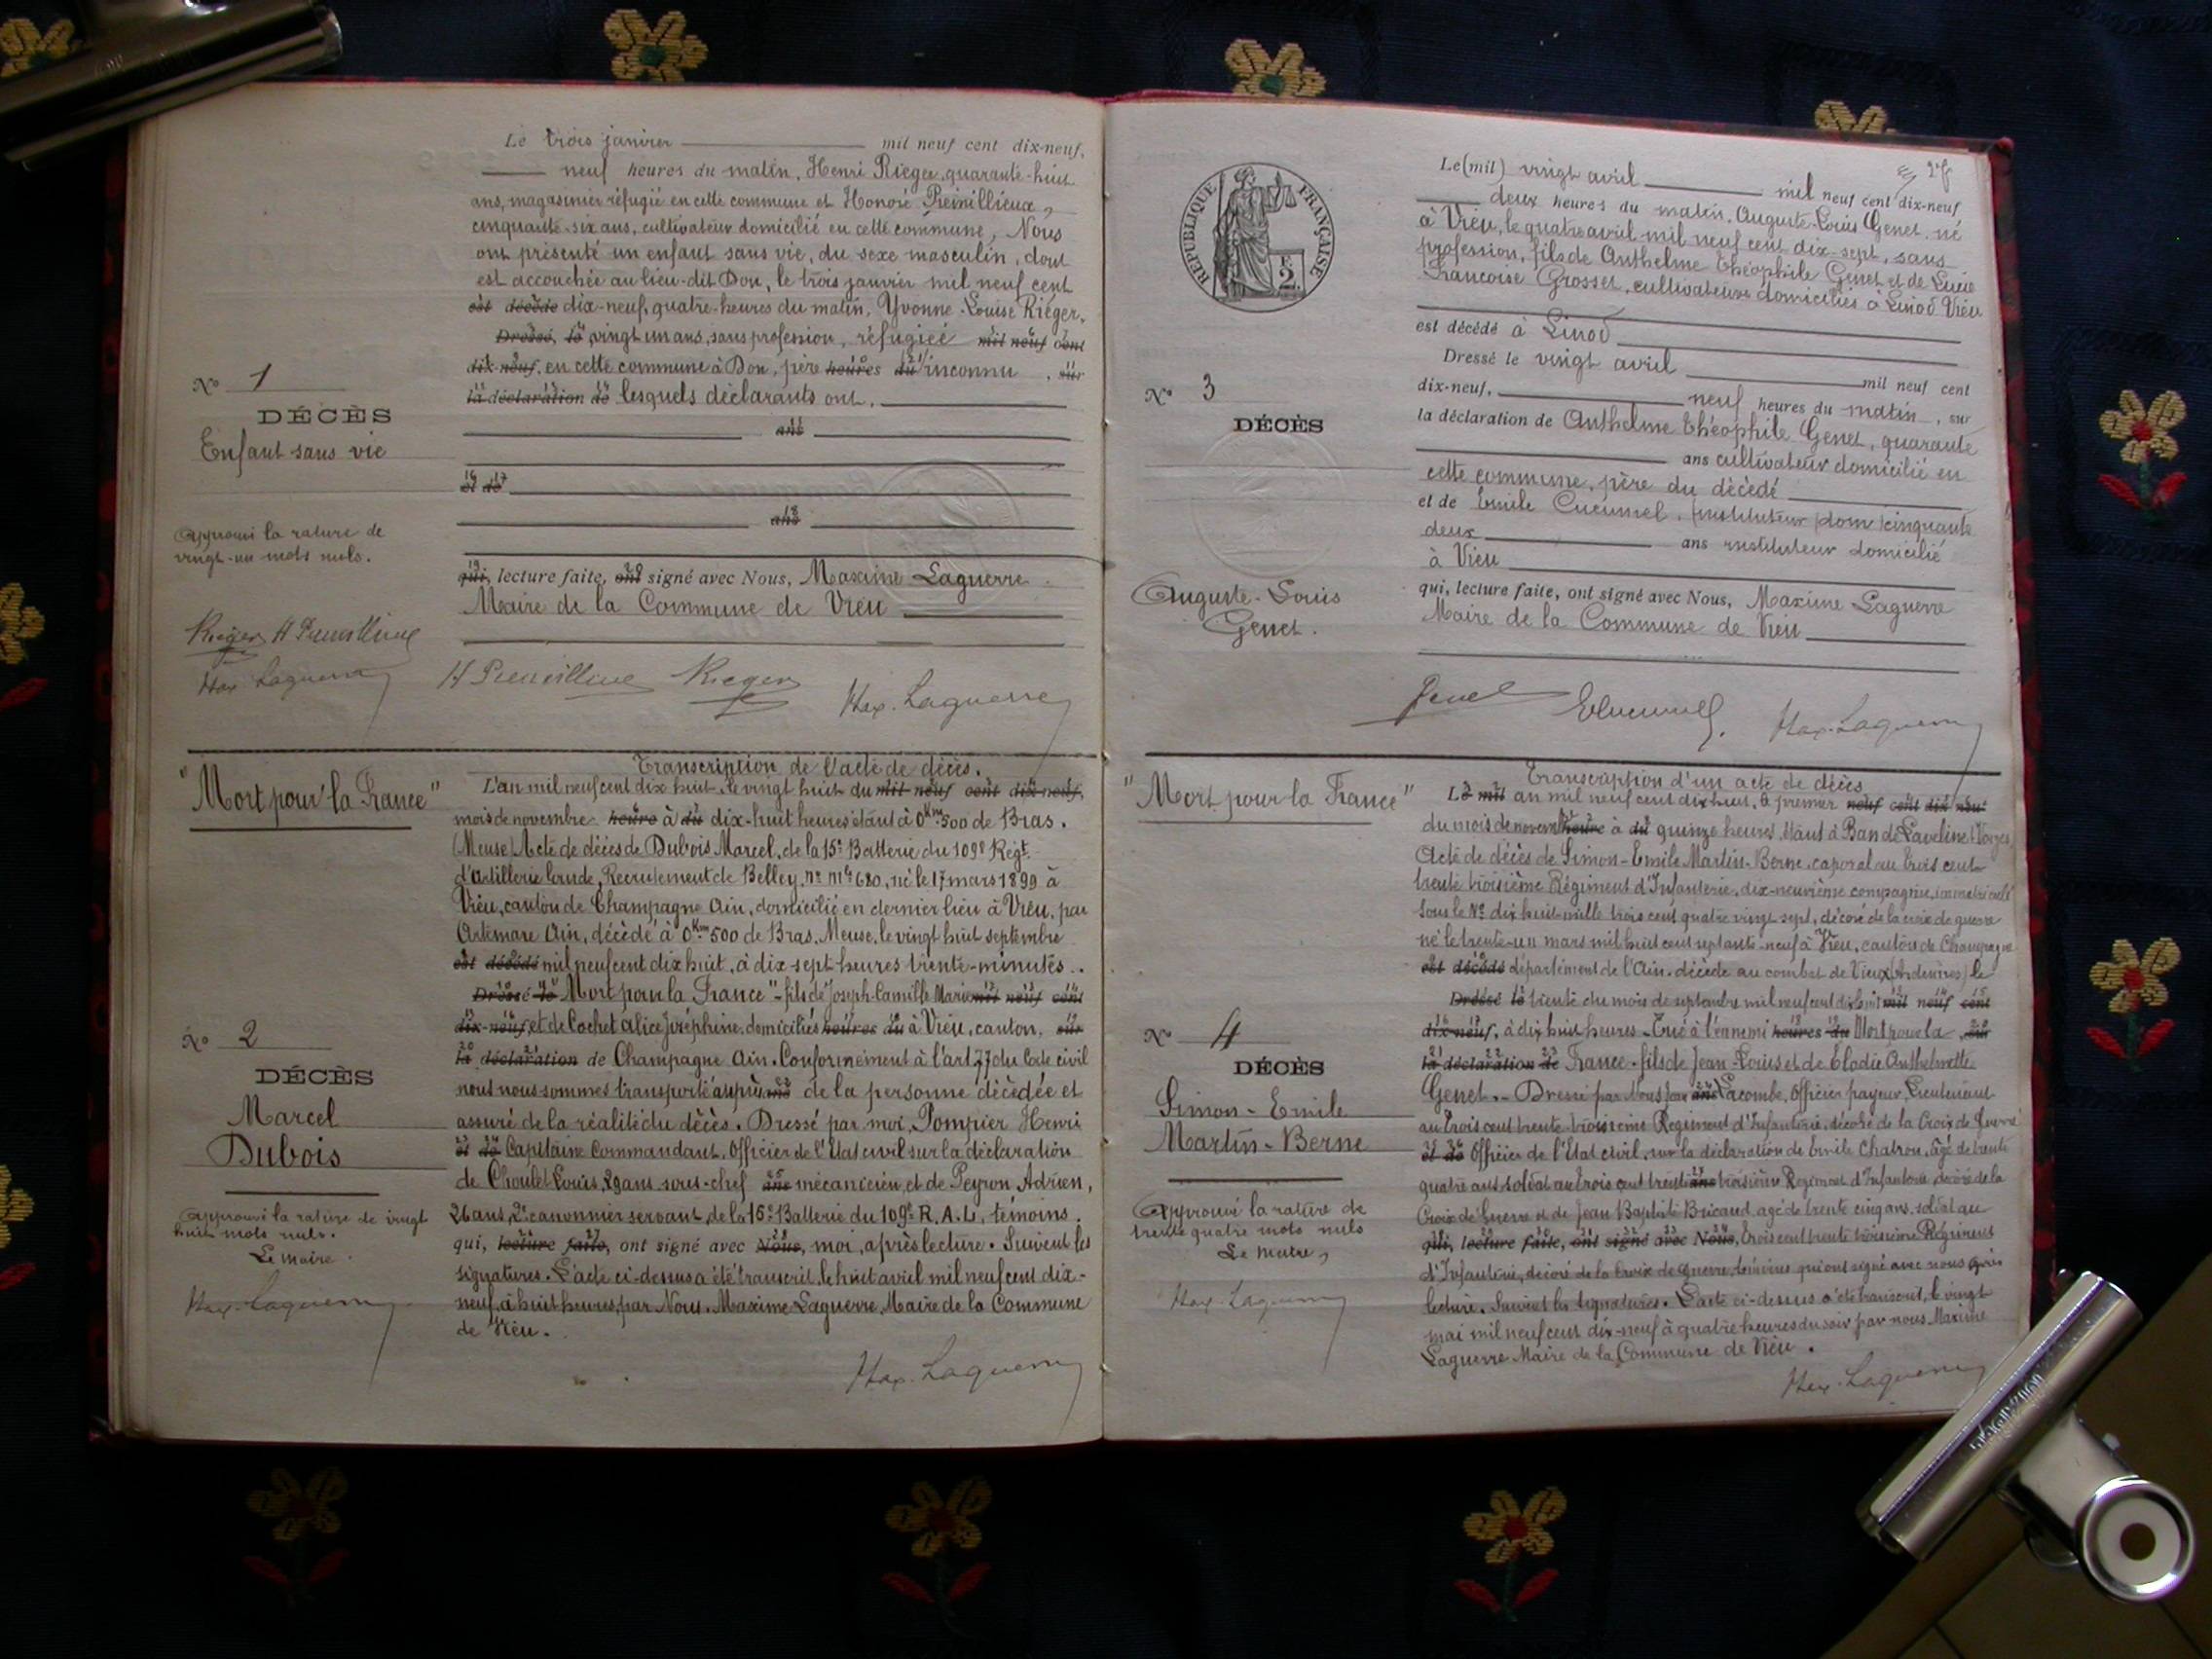 Le trois janvier mil neuf cent dix-neuf,
neuf heures du matin, Henri Rieger, quarante-huit
ans, magasinier réfugié en cette commune et Honoré Preinillieux,
cinquante-six ans, cultivateur domicilié en cette commune, Nous
ont présenté un enfant sans vie, du sexe masculin, dont
est accouchée au lieu-dit Don, le trois janvier mil neuf cent
est décédé dix-neuf, quatre heures du matin, Yvonne-Louise Rieger,
Dressé, le vingt un ans, sans profession, réfugiée mil neuf cent
dix-neuf, en cette commune à Don, père heures du inconnu, sur
la déclaration de lesquels déclarants ont.
ans
et de
ans
qui, lecture faite, ont signé avec Nous, Maxime Laguerre
Maire de la Commune de Vieu
N° 1
DÉCÈS
Enfant sans vie
Approuvé la rature de
vingt-un mots nuls.
Rieger
Max. Laguerre
Rieger Max. Laguerre
"Mort pour la France"
Transcription de l'acte de décès.
L'an mil neuf cent dix huit, le vingt huit du mil neuf cent dix-neuf,
mois de novembre heure à du dix-huit heures étant à 0Km500 de Bras.
(Meuse) Acte de décès de Dubois Marcel, de la 15e Batterie du 109e Régt
d'artillerie lourde, Recrutement de Belley, no mle 680, né le 17 mars 1899 à
Vieu, canton de Champagne Ain, domicilié en dernier lieu à Vieu, par
Artemare Ain, décédé à 0Km500 de Bras, Meuse, le vingt huit septembre
est décédé mil neuf cent dix huit, à dix-sept heures trente-minutes.
Dressé le "Mort pour la France" - fils de Joseph-Camille Marie mil neuf cent
dix-neuf, et de Cochet Alice Joséphine, domiciliés heures du à Vieu, canton, sur
la déclaration de Champagne Ain. Conformément à l'art 77 du Code civil
nous nous sommes transporté auprès ans de la personne décédée et
assuré de la réalité du décès. Dressé par moi, Pompier Henri
et de Capitaine Commandant, Officier de l'Etat civil sur la déclaration
de Choulet Louis, 29 ans sous-chef ans mécanicien, et de Peyron Adrien,
26 ans, 2e canonnier servant, de la 15e Batterie du 109e R.A.L, témoins.
qui, lecture faite, ont signé avec Nous, moi, après lecture. Suivent les
signatures. L'acte ci-dessus a été transcrit, le huit avril mil neuf cent dix-
neuf, à huit heures, par Nous. Maxime Laguerre, Maire de la Commune
de Vieu.
N° 2
DÉCÈS
Marcel
Dubois
Approuvé la rature de vingt
huit mots nuls.
Le Maire.
Max. Laguerre
Max. Laguerre
RÉPUBLIQUE FRANÇAISE
Le (mil) vingt avril mil neuf cent dix-neuf
deux heures du matin, Auguste-Louis Genet, né
à Vieu, le quatre avril mil neuf cent dix-sept, sans
profession, fils de Anthelme Théophile Genet et de Lucie
Francoise Grosset, cultivateurs domiciliés à Linod Vieu
est décédé à Linod
Dressé le vingt avril mil neuf cent
dix-neuf, neuf heures du matin, sur
la déclaration de Anthelme Théophile Genet, quarante
ans cultivateur domicilié en
cette commune, père du décédé
et de Emile Cucumel, (instituteur (dom) cinquante
deux ans instituteur domicilié
à Vieu
qui, lecture faite, ont signé avec Nous, Maxime Laguerre
Maire de la Commune de Vieu
N° 3
DÉCÈS
Auguste-Louis
Genet.
Genet ECucumel. Max. Laguerre
"Mort pour la France"
Transcription d'un acte de décès
Le mil an mil neuf cent dix huit, le premier neuf cent dix neuf
du mois de novembre heure à du quinze heures, étant à Ban de Laveline (Vosges)
Acte de décès de Simon-Emile Martin-Berne, caporal au trois cent
trente troisième Régiment d'Infanterie, dix-neuvième compagnie, immatriculé
sous le No dix huit mille trois cent quatre vingt sept, décoré de la croix de guerre
né le trente-un mars mil huit cent septante-neuf à Vieu, canton de Champagne
est décédé département de l'Ain. décédé au combat de Vieux (Ardennes) le
Dressé le trente du mois de septembre mil neuf cent dix huit mil neuf cent
dix-neuf, à dix huit heures. Tué à l'ennemi heures du Mort pour la sur
la déclaration de France. fils de Jean-Louis et de Elodie Anthelmette
Genet. - Dressé par Nous Jean ans Lacombe, Officier payeur, Lieutenant
au trois cent trente-troisième Régiment d'Infanterie, décoré de la Croix de Guerre
et de Officier de l'Etat civil, sur la déclaration de Emile Chatron, âgé de trente
quatre ans soldat au trois cent trente ans troisième Régiment d'Infanterie, décoré de la
Croix de Guerre et de Jean Baptiste Bricaud, agé de trente cinq ans, soldat au
qui, lecture faite, ont signé avec Nous, trois cent trente troisième Régiment
d'Infanterie, décoré de la Croix de Guerre, témoins qui ont signé avec nous après
lecture. Suivent les signatures. L'acte ci-dessus a été transcrit, le vingt
mai mil neuf cent dix-neuf à quatre heures du soir par nous Maxime
Laguerre Maire de la Commune de Vieu.
N° 4
DÉCÈS
Simon-Emile
Martin-Berne
Approuvé la rature de
trente quatre mots nuls
Le Maire,
Max. Laguerre
Max. Laguerre